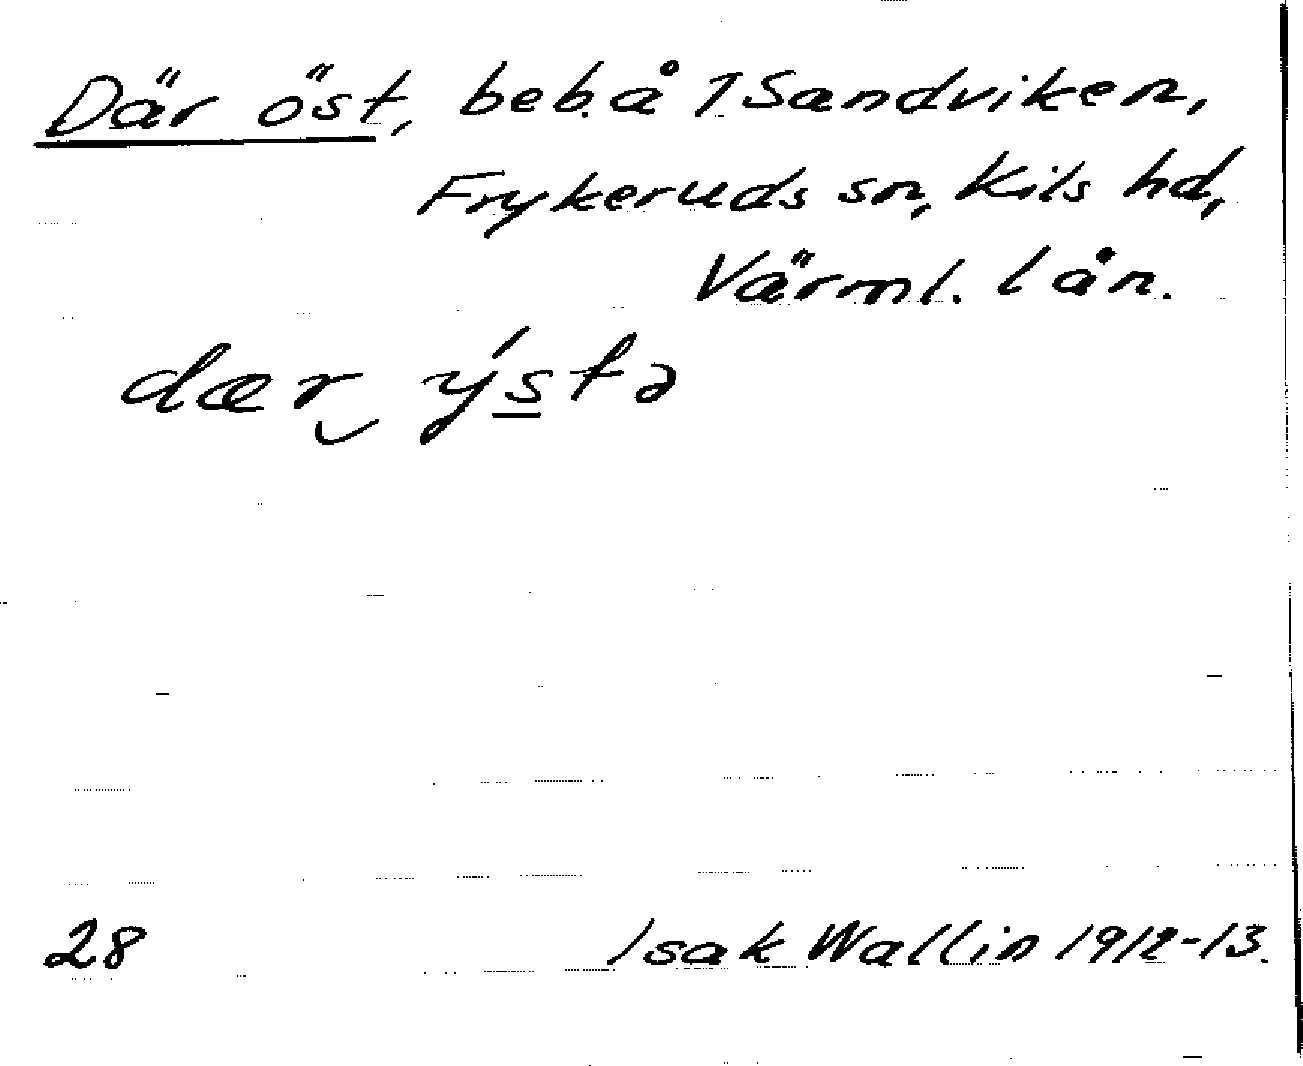 Där öst, beb. å 1 Sandviken,
Frykeruds sn, Kils hd,
Värml. län.
dær ýstə
28
Isak Wallin 1912-13.